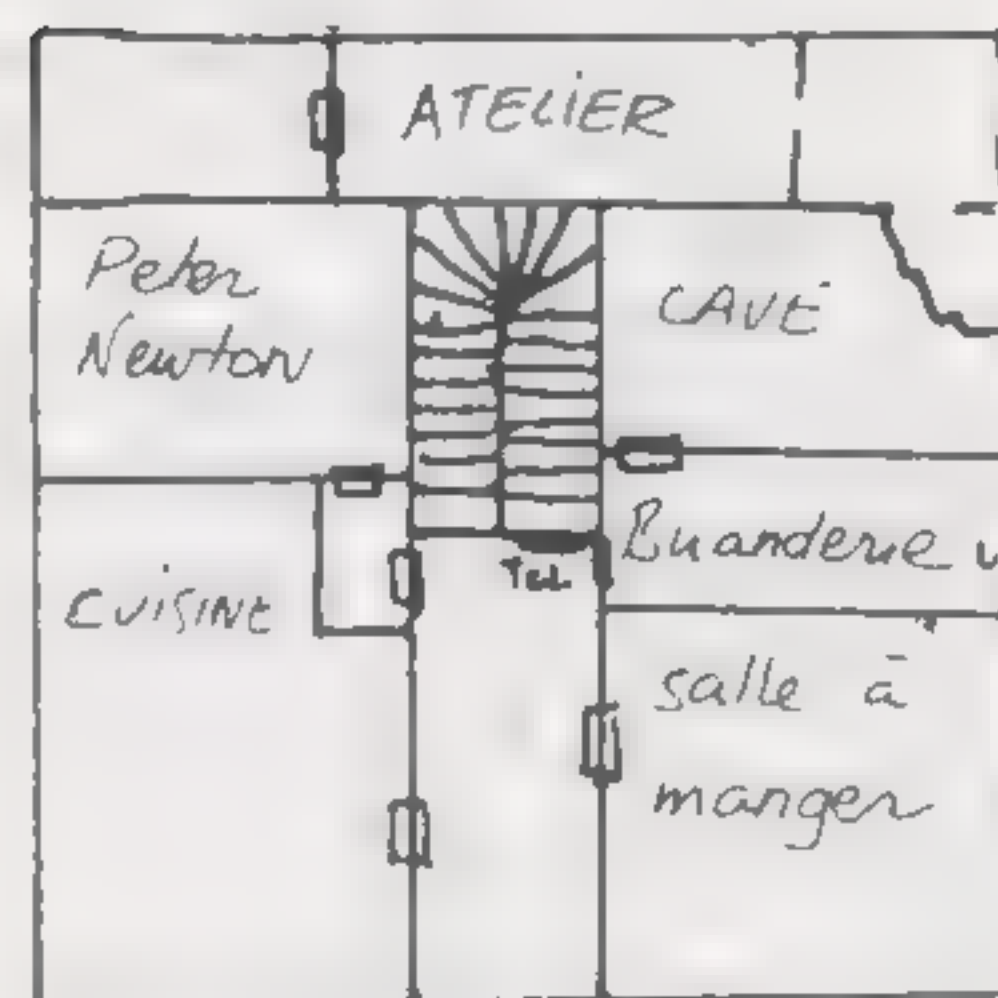 ATELIER
Peter
Newton
CAVE
Buanderie
Tel.
CUISINE
salle à
manger